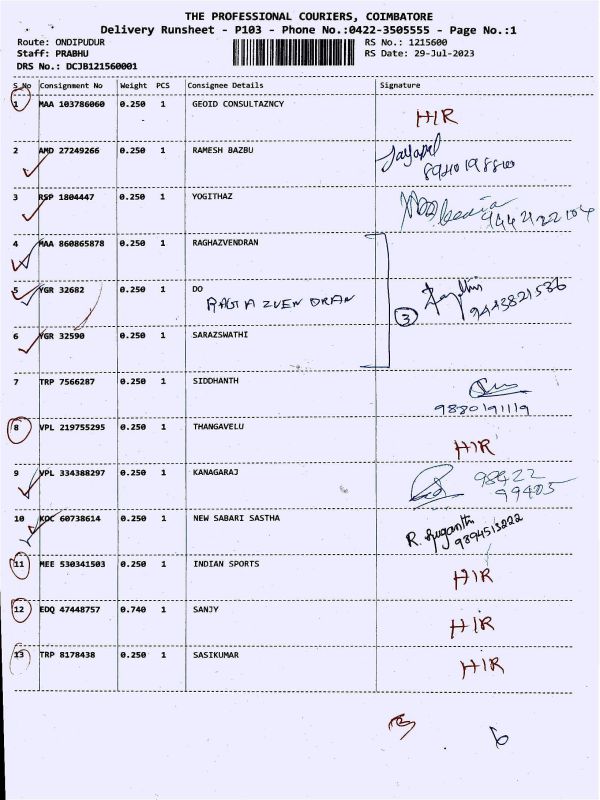 THE PROFESSIONAL COURIERS, COIMBATORE
Delivery Runsheet - P103 - Phone No.:0422-3505555 - Page No.:1
Route: ONDIPUDUR RS No.: 1215600
Staff: PRABHU RS Date: 29-Jul-2023
DRS No.: DCJB121560001
S_No Consignment No Weight PCS Consignee Details Signature
1 MAA 103786060 0.250 1 GEOID CONSULTAZNCY
HIR
2 AMD 27249266 0.250 1 RAMESH BAZBU
3 RSP 1804447 0.250 1 YOGITHAZ
4 MAA 860865878 0.250 1 RAGHAZVENDRAN
5 YGR 32682 0.250 1 DO
RAGHAZVENDRAN
3 9443821536
6 YGR 32590 0.250 1 SARAZSWATHI
7 TRP 7566287 0.250 1 SIDDHANTH
9880191119
8 VPL 219755295 0.250 1 THANGAVELU
HIR
9 VPL 334388297 0.250 1 KANAGARAJ
98422
99405
10 KOC 60738614 0.250 1 NEW SABARI SASTHA
R. Suganthi
9894513222
11 MEE 530341503 0.250 1 INDIAN SPORTS
HIR
12 EDQ 47448757 0.740 1 SANJY
HIR
13 TRP 8178438 0.250 1 SASIKUMAR
HIR